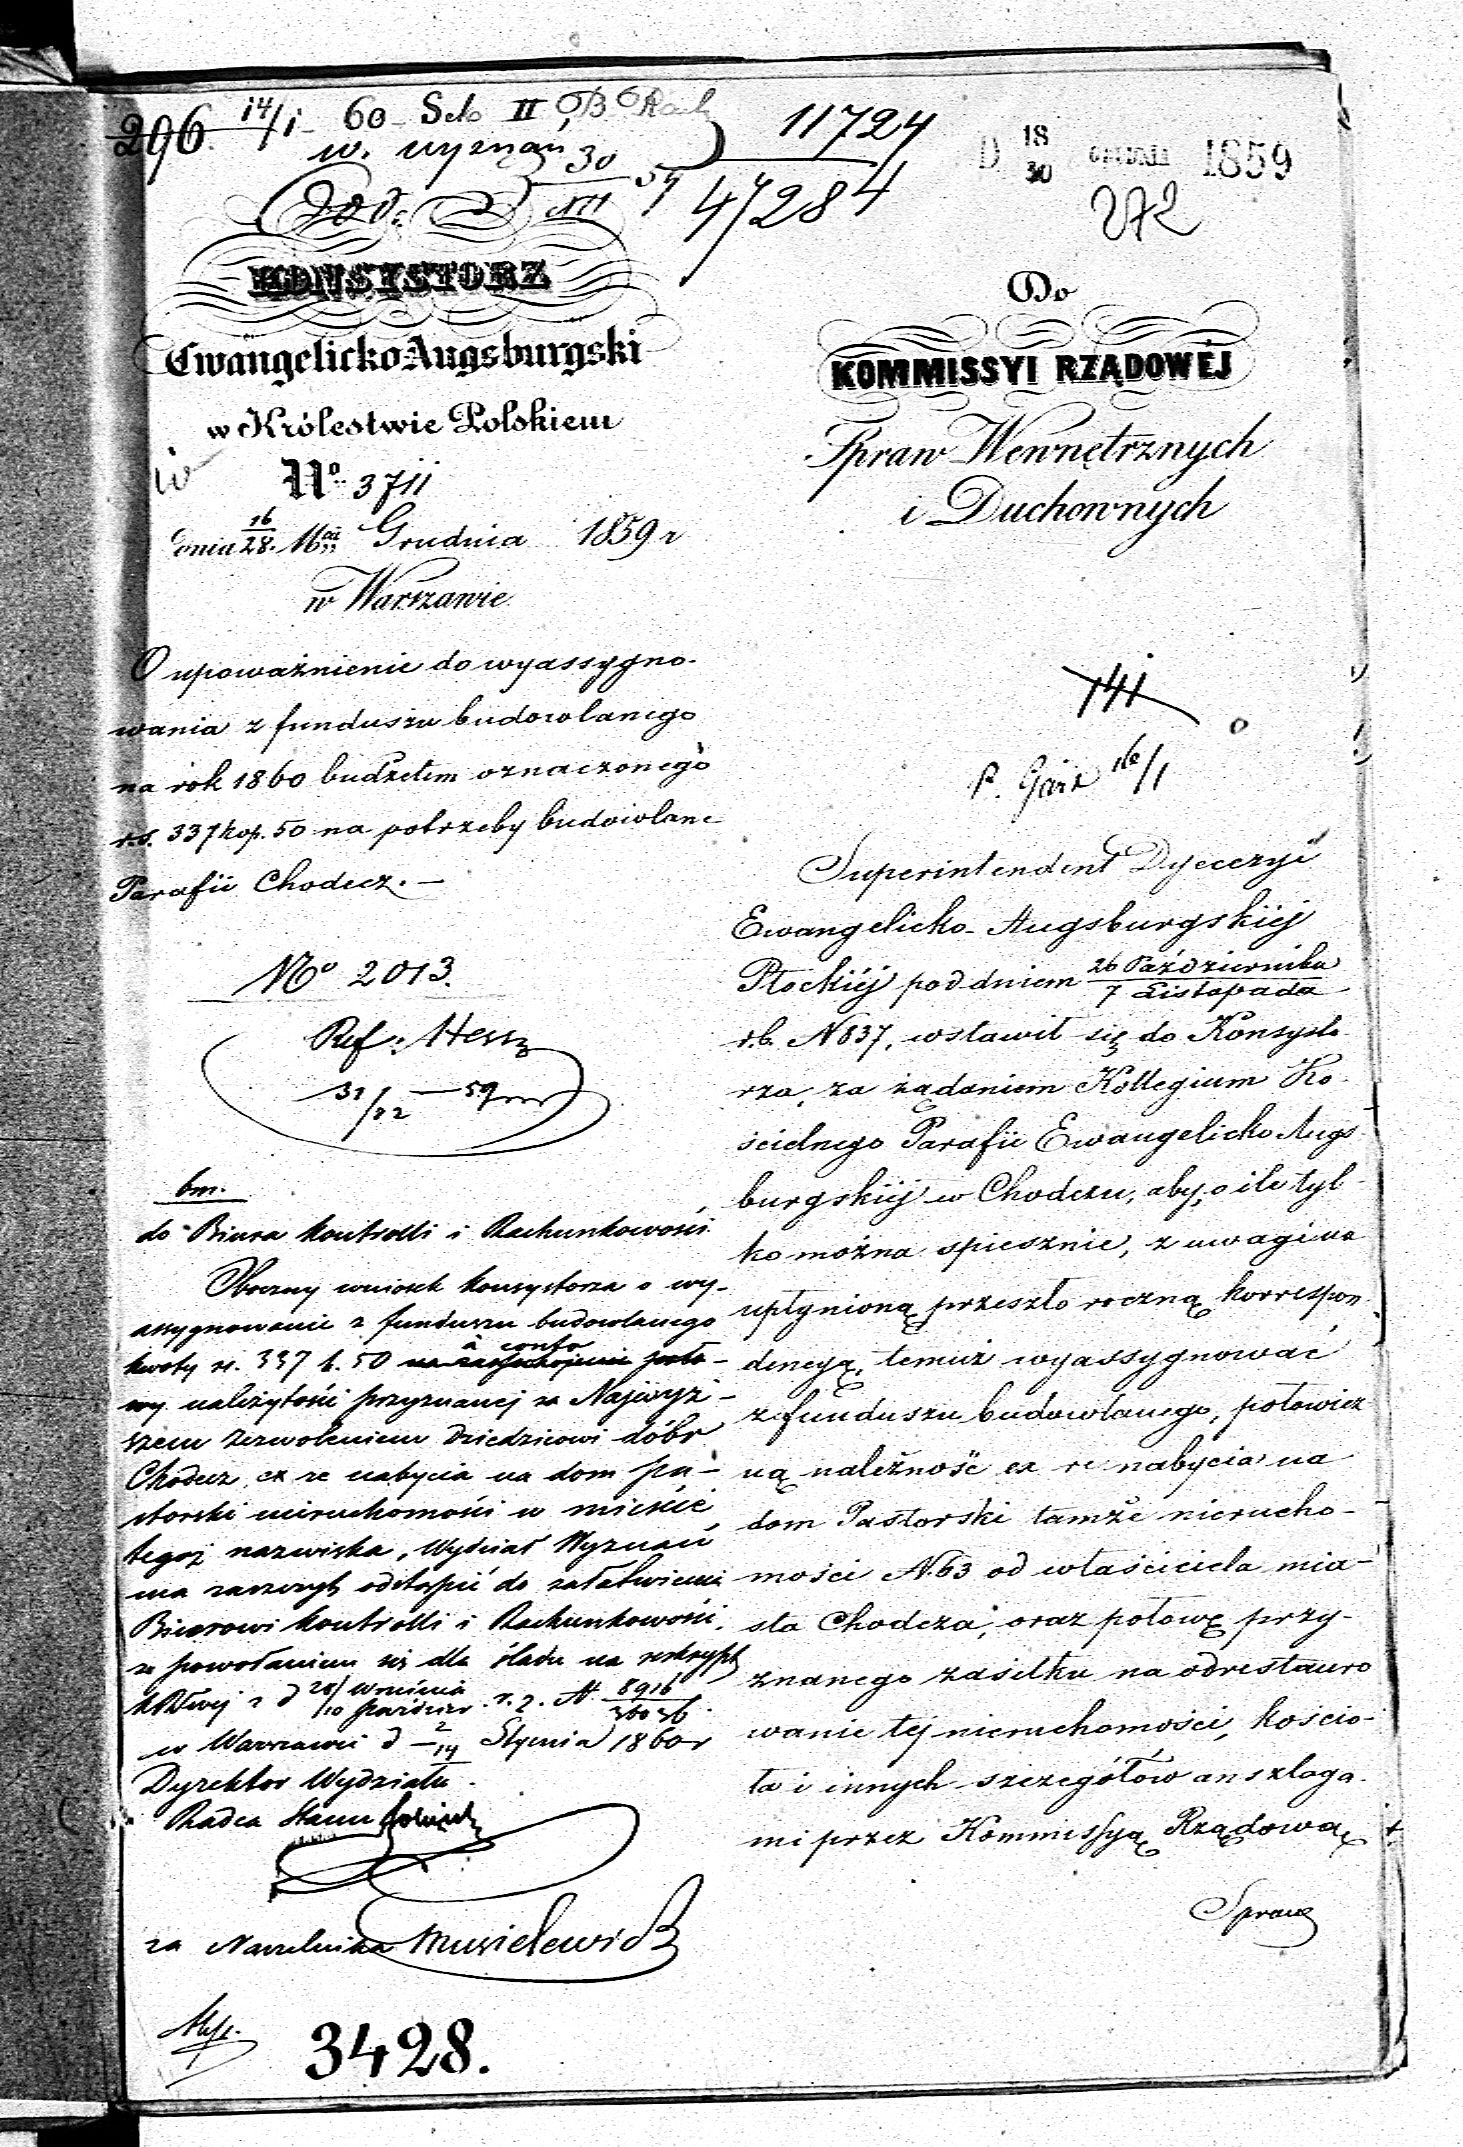 296. 14/1 60 Sek II
w. wyznań
30/XII 59
11724
47284
D 18/30 GRUDNIA 1859
272
KONSYSTORZ
Ewangelicko-Augsburgski
w Królestwie Polskiem
No. 3711
dnia 16/28. Mca Grudnia 1859 r
w Warszawie
O upoważnienie do wyassygno-
wania z funduszu budowlanego
na rok 1860 budżetem oznaczonego
r.s. 337 kop. 50 na potrzeby budowlane
Parafii Chodecz. —
No 2013.
Ref:
31/12 — 59
bm.
do Biura Kontrolli i Rachunkowości
Obecny wniosek Konsystorza o wy-
assygnowanie z funduszu budowlanego
à conto
kwoty rs. 337 k. 50 na zaspokojenie poło-
wy należytości przyznanej za Najwyż-
szem zezwoleniem Dziedzicowi dóbr
Chodecz ex re nabycia na dom pa-
storski nieruchomości w mieście
tegoż nazwiska, Wydział Wyznań
ma zaszczyt odstąpić do załatwienia
Biurowi Kontrolli i Rachunkowości,
z powołaniem się dla śladu na reskrypt
z d 28/10 września/paździer. r. z. N 8916/36036.
w Warszawie d 2/14 Stycznia 1860 r
Dyrektor Wydziału
Radca Stanu
za Naczelnika
3428.
Do
KOMMISSYI RZĄDOWÉJ
Spraw Wewnętrznych
i Duchownych
141
P. 16/1
Superintendent Dyecezyi
Ewangelicko-Augsburgskiéj
Płockiéj pod dniem 26 Października/7 Listopada
r.b. N 837, wstawił się do Konsysto
rza, za żądaniem Kollegium Ko-
ścielnego Parafii Ewangelicko Augs-
burgskiéj w Chodczu, aby, o ile tyl-
ko można spiesznie, z uwagi na
upłynioną przeszło roczną korrespon-
dencyę, temuż wyassygnować
z funduszu budowlanego, połowicz
ną należność ex re nabycia na
dom Pastorski tamże nierucho-
mości N. 63 od właściciela mia-
sta Chodcza, oraz połowę przy-
znanego zasiłku na odrestauro
wanie téj nieruchomości, kościo-
ła i innych szczegółów anszlaga-
mi przez Kommissyą Rządową
Spraw